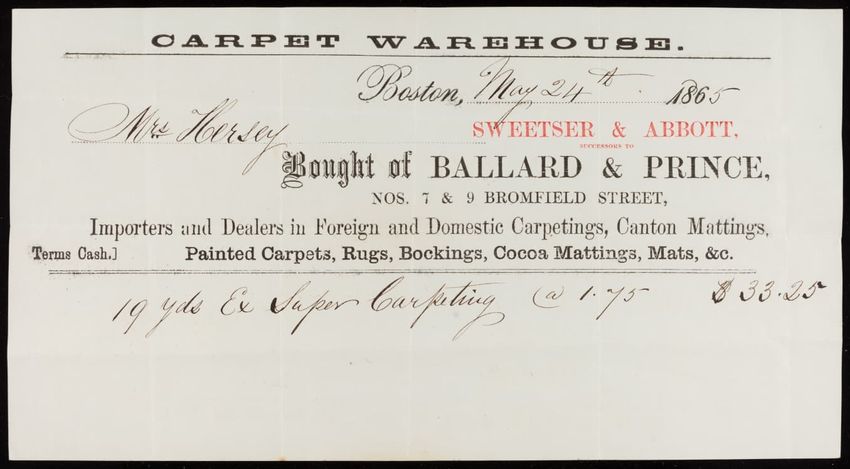 CARPET WAREHOUSE.
Boston, May 24th. 1865
Mrs Hersey
SWEETSER & ABBOTT,
SUCCESSORS TO
Bought of BALLARD & PRINCE,
NOS. 7 & 9 BROMFIELD STREET,
Importers and Dealers in Foreign and Domestic Carpetings, Canton Mattings,
Terms Cash.] Painted Carpets, Rugs, Bockings, Cocoa Mattings, Mats, &c.
19 yds Ex Super Carpeting @ 1.75 $ 33.25